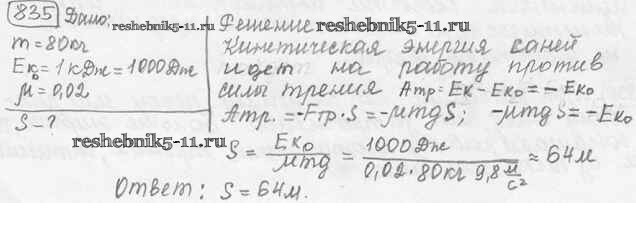 835 Дано: reshebnik5-11.ru
m = 80кг
Eк₀ = 1 кДж = 1000Дж
μ = 0,02
S – ?
Решение reshebnik5-11.ru
Кинетическая энергия саней
идет на работу против
силы трения Aтр = Eк - Eк₀ = - Eк₀
Aтр. = -Fтр · S = -μmgS; -μmgS = -Eк₀
reshebnik5-11.ru
S = Eк₀ / μmg = 1000Дж / 0,02 · 80кг 9,8 м/с² ≈ 64м
Ответ: S = 64м.